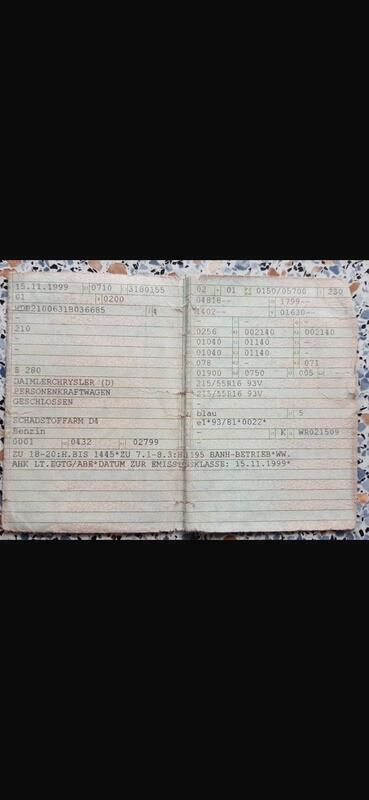 15.11.1999 0710 3180155
01 0200
WDB2100631B036685 4
-
210
-
-
-
E 280
DAIMLERCHRYSLER (D)
PERSONENKRAFTWAGEN
GESCHLOSSEN
-
SCHADSTOFFARM D4
Benzin
0001 0432 02799
02 01 0150/05700 230
04818-- 1799--
1402-- 01630--
- - -
0256 002140 002140
01040 01140 -
01040 01140 -
078 - 071
01900 0750 005 -
215/55R16 93V
215/55R16 93V
-
blau 5
e1*93/81*0022*
- K WR021509
-
ZU 18-20:H.BIS 1445*ZU 7.1-8.3:H 195 BANH-BETRIEB*WW.
AHK LT.EGTG/ABE*DATUM ZUR EMISSIONSKLASSE: 15.11.1999*